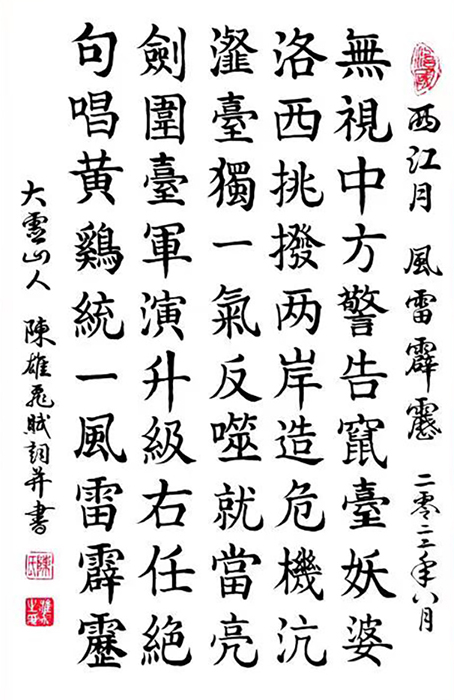 西江月 風雷霹靂 二零二二年八月
無視中方警告竄臺妖婆
洛西挑撥两岸造危機沆
瀣臺獨一氣反噬就當亮
劍圍臺軍演升級右任絕
句唱黃鷄統一風雷霹靂
大靈山人 陳雄飛賦詞并書